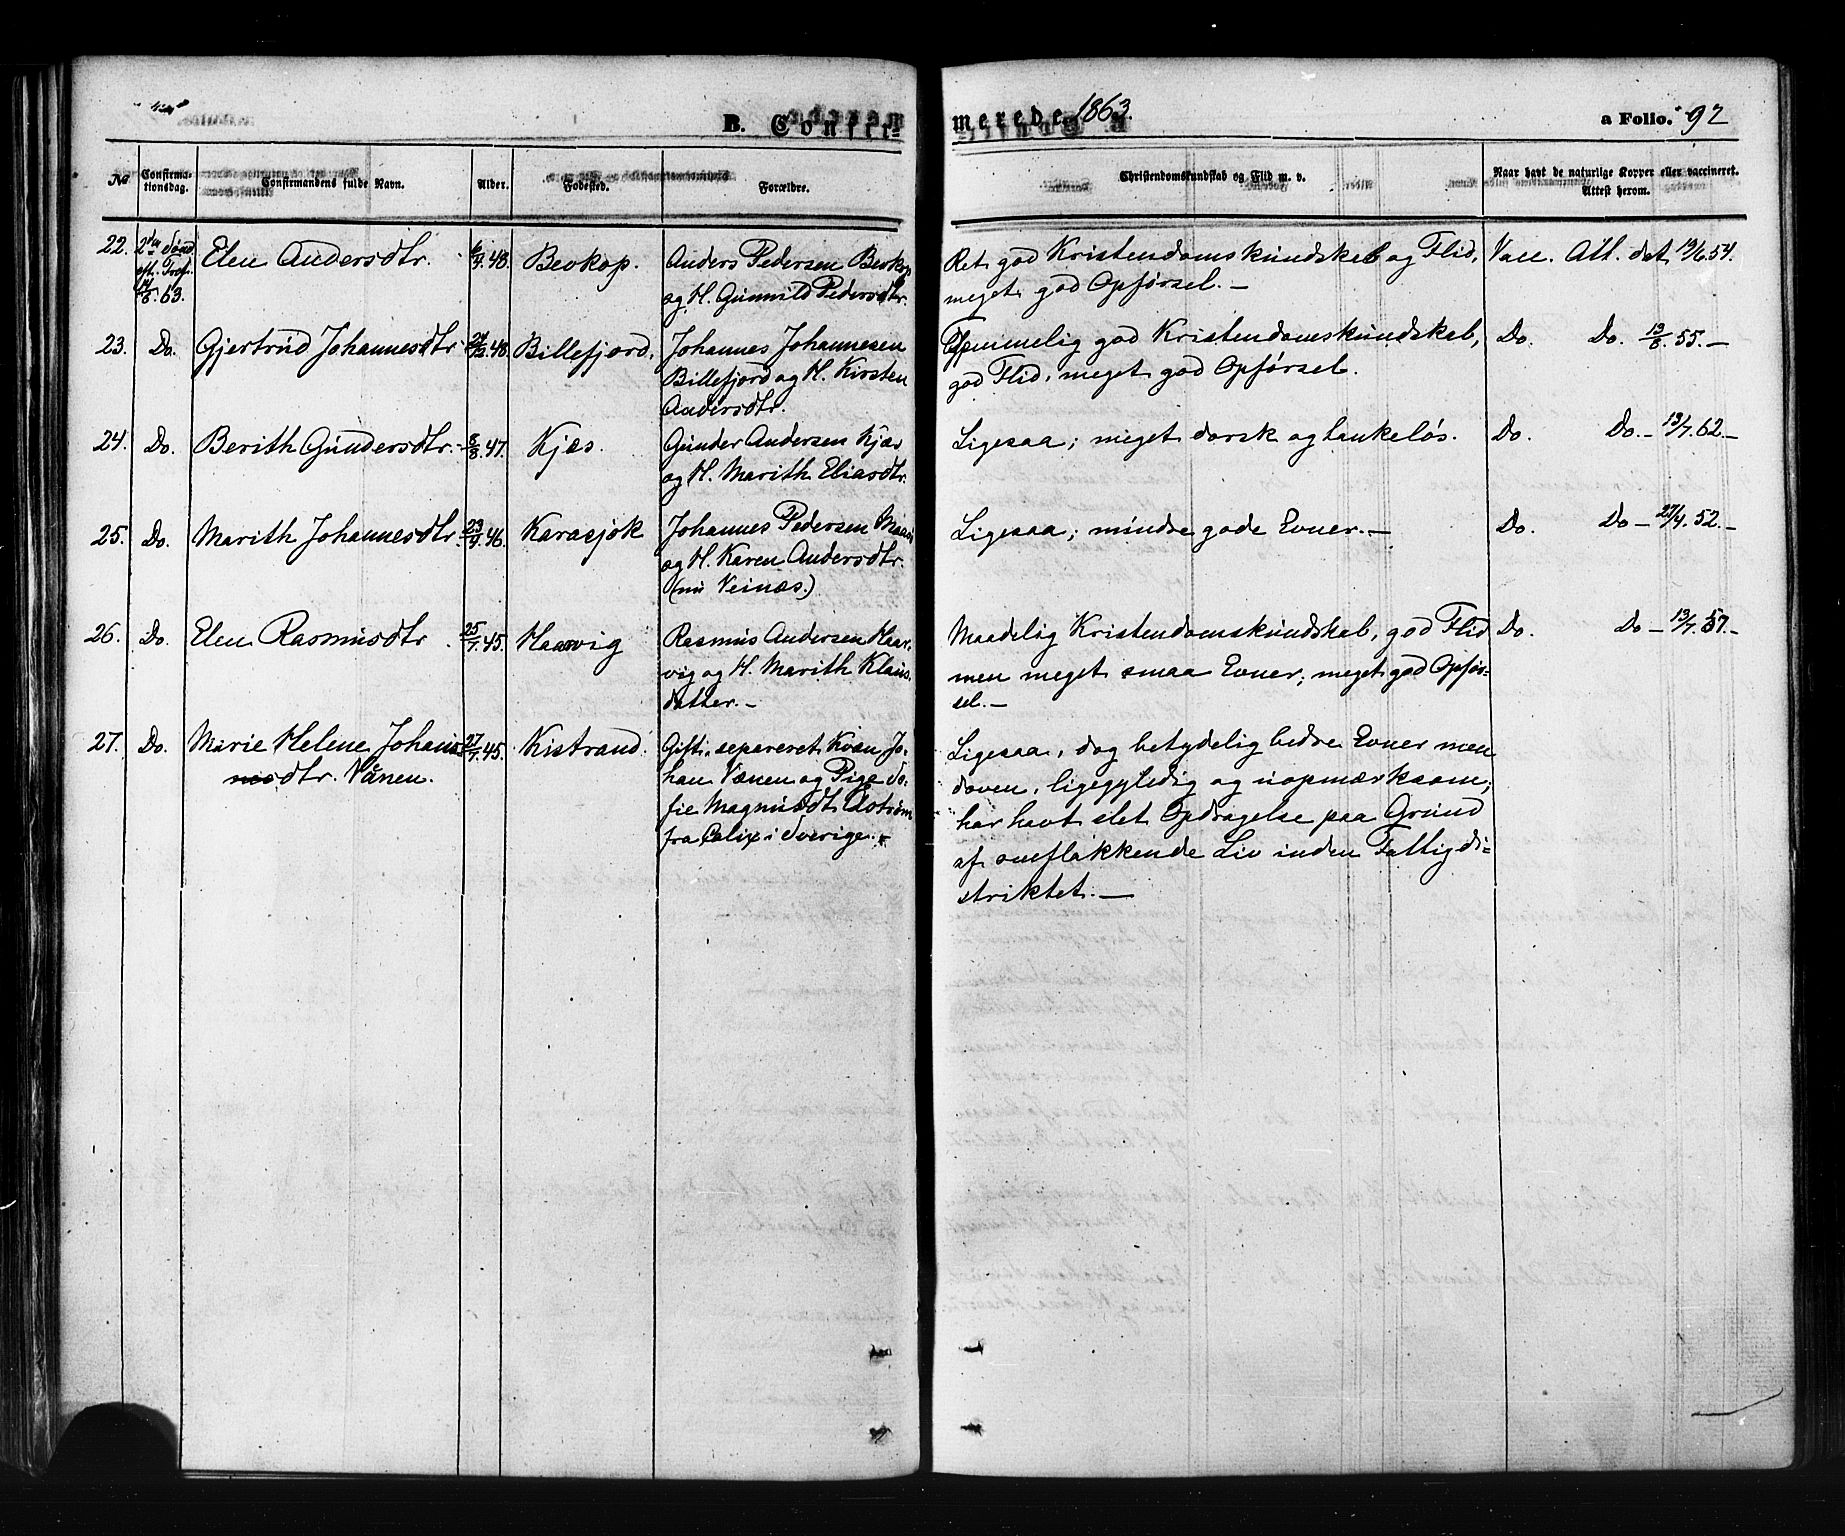 B. Confirmerede 1863. a Folio. 92
No Confirmationsdag. Confirmandens fulde Navn. Alder. Fødested. Forældre. Christendomskundskab og Flid m. v. Naar havt de naturlige Kopper eller vaccineret. Attest herom.
22. 2den Sønd. eft. Tref. 14/6. 63. Elen Andersdtr. 6/9.48. Bevkop. Anders Pedersen Bevkop Ret god Kristendomskundskab og Flid, Vacc. Att. dat 19/6.54.
og H. Gunnild Pedersdtr. meget god Opførsel.—
23. Do. Gjertrud Johannesdtr 48. Billefjord. Johannes Johannesen Temmelig god Kristendomskundskab, Do. Do. 13/8. 55.—
Billefjord og H. Kirsten god Flid, meget god Opførsel.
Andersdtr.
24. Do. Berith Gundersdtr. 8/8.47. Kjæs. Gunder Andersen Kjæs Ligesaa; meget dorsk og tankeløs. Do. Do.— 13/7.62—
og H. Marith Eliasdtr.
25. Do. Marith Johannesdtr. 23/9.46. Karasjok Johannes Pedersen Ligesaa; mindre gode Evner.— Do. Do— 27/4. 52.—
og H. Karen Andersdtr.
(nu Veinæs.)
26. Do. Elen Rasmusdtr. 25/7.45. Haarvig Rasmus Andersen Haar- Maadelig Kristendomskundskab, god Flid Do. Do— 13/7.57.—
vig og H. Marith Klaus- men meget smaa Evner; meget god Opfør-
datter.— sel.—
27. Do. Marie Helene Johans 27/7.45. Kistrand. Gift, separeret Kvæn Jo- Ligesaa, dog betydelig bedre Evner men
dtr. Vånen. han Vænen og Pige So- doven, ligegyldig og uopmærksom;
fie Magnusdt. fra Calix i Sverige. har havt slet Opdragelse paa Grund
af omflakkende Liv inden Fattigdi-
striktet.—